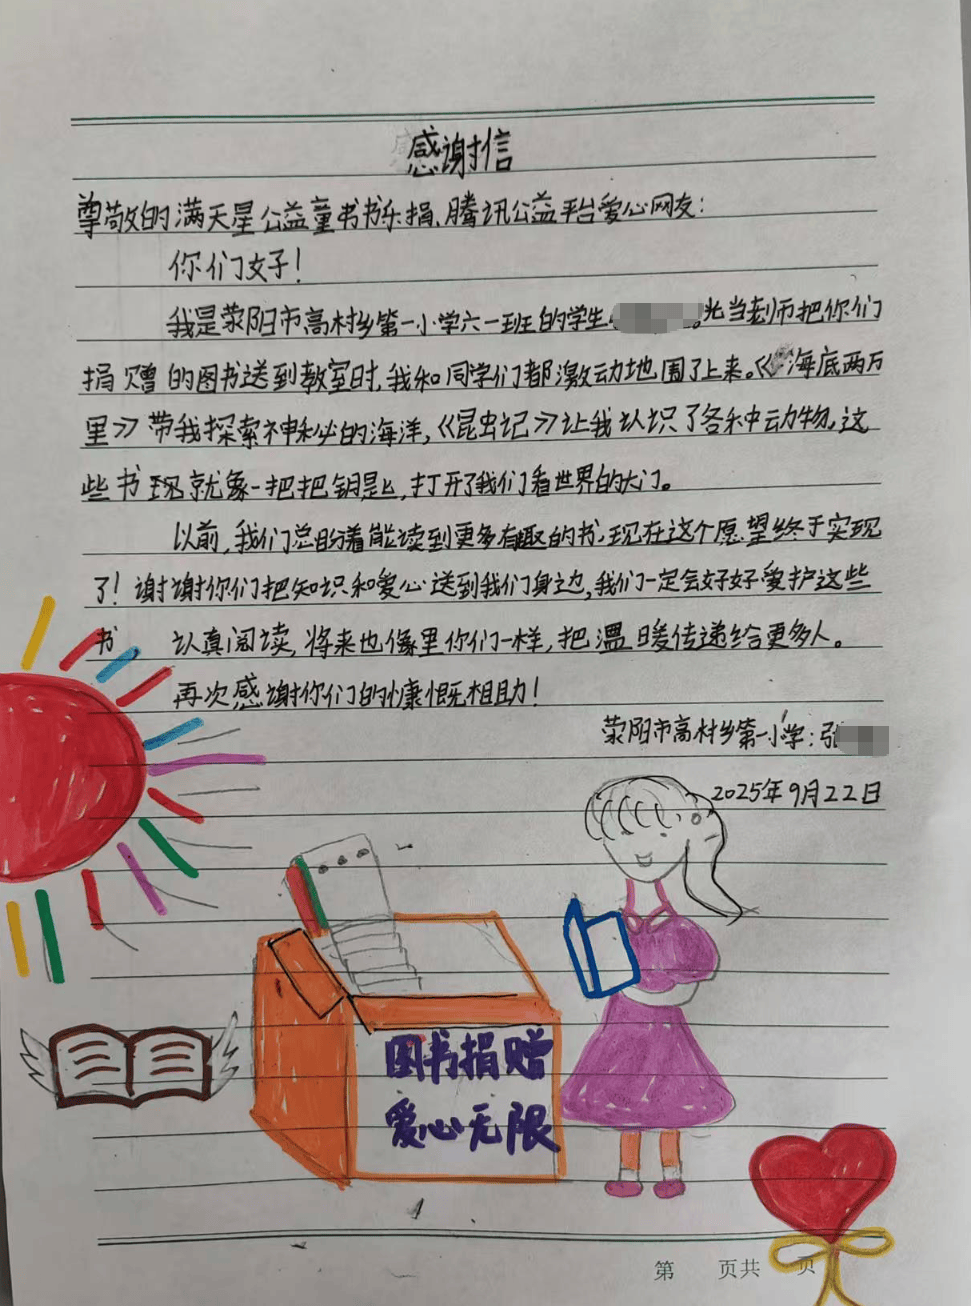 感谢信
尊敬的满天星公益童书书乐捐、腾讯公益平台爱心网友：
你们好！
我是荥阳市高村乡第一小学六一班的学生。当老师把你们
捐赠的图书送到教室时，我和同学们都激动地围了上来。《海底两万
里》带我探索神秘的海洋，《昆虫记》让我认识了各种动物。这
些书现就象一把把钥匙，打开了我们看世界的大门。
以前，我们总盼着能读到更多有趣的书，现在这个愿望终于实现
了！谢谢你们把知识和爱心送到我们身边，我们一定会好好爱护这些
书 认真阅读，将来也像里你们一样，把温暖传递给更多人。
再次感谢你们的慷慨相助！
荥阳市高村乡第一小学：张
2025年9月22日
图书捐赠
爱心无限
第 页共 页